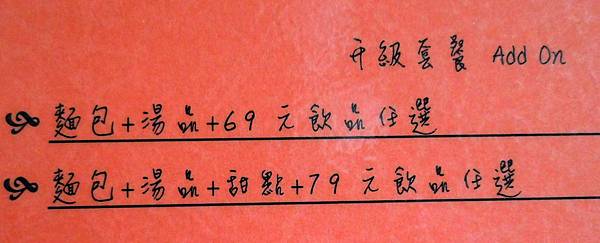 升級套餐 Add On
麵包+湯品+69 元飲品任選
麵包+湯品+甜點+79 元飲品任選